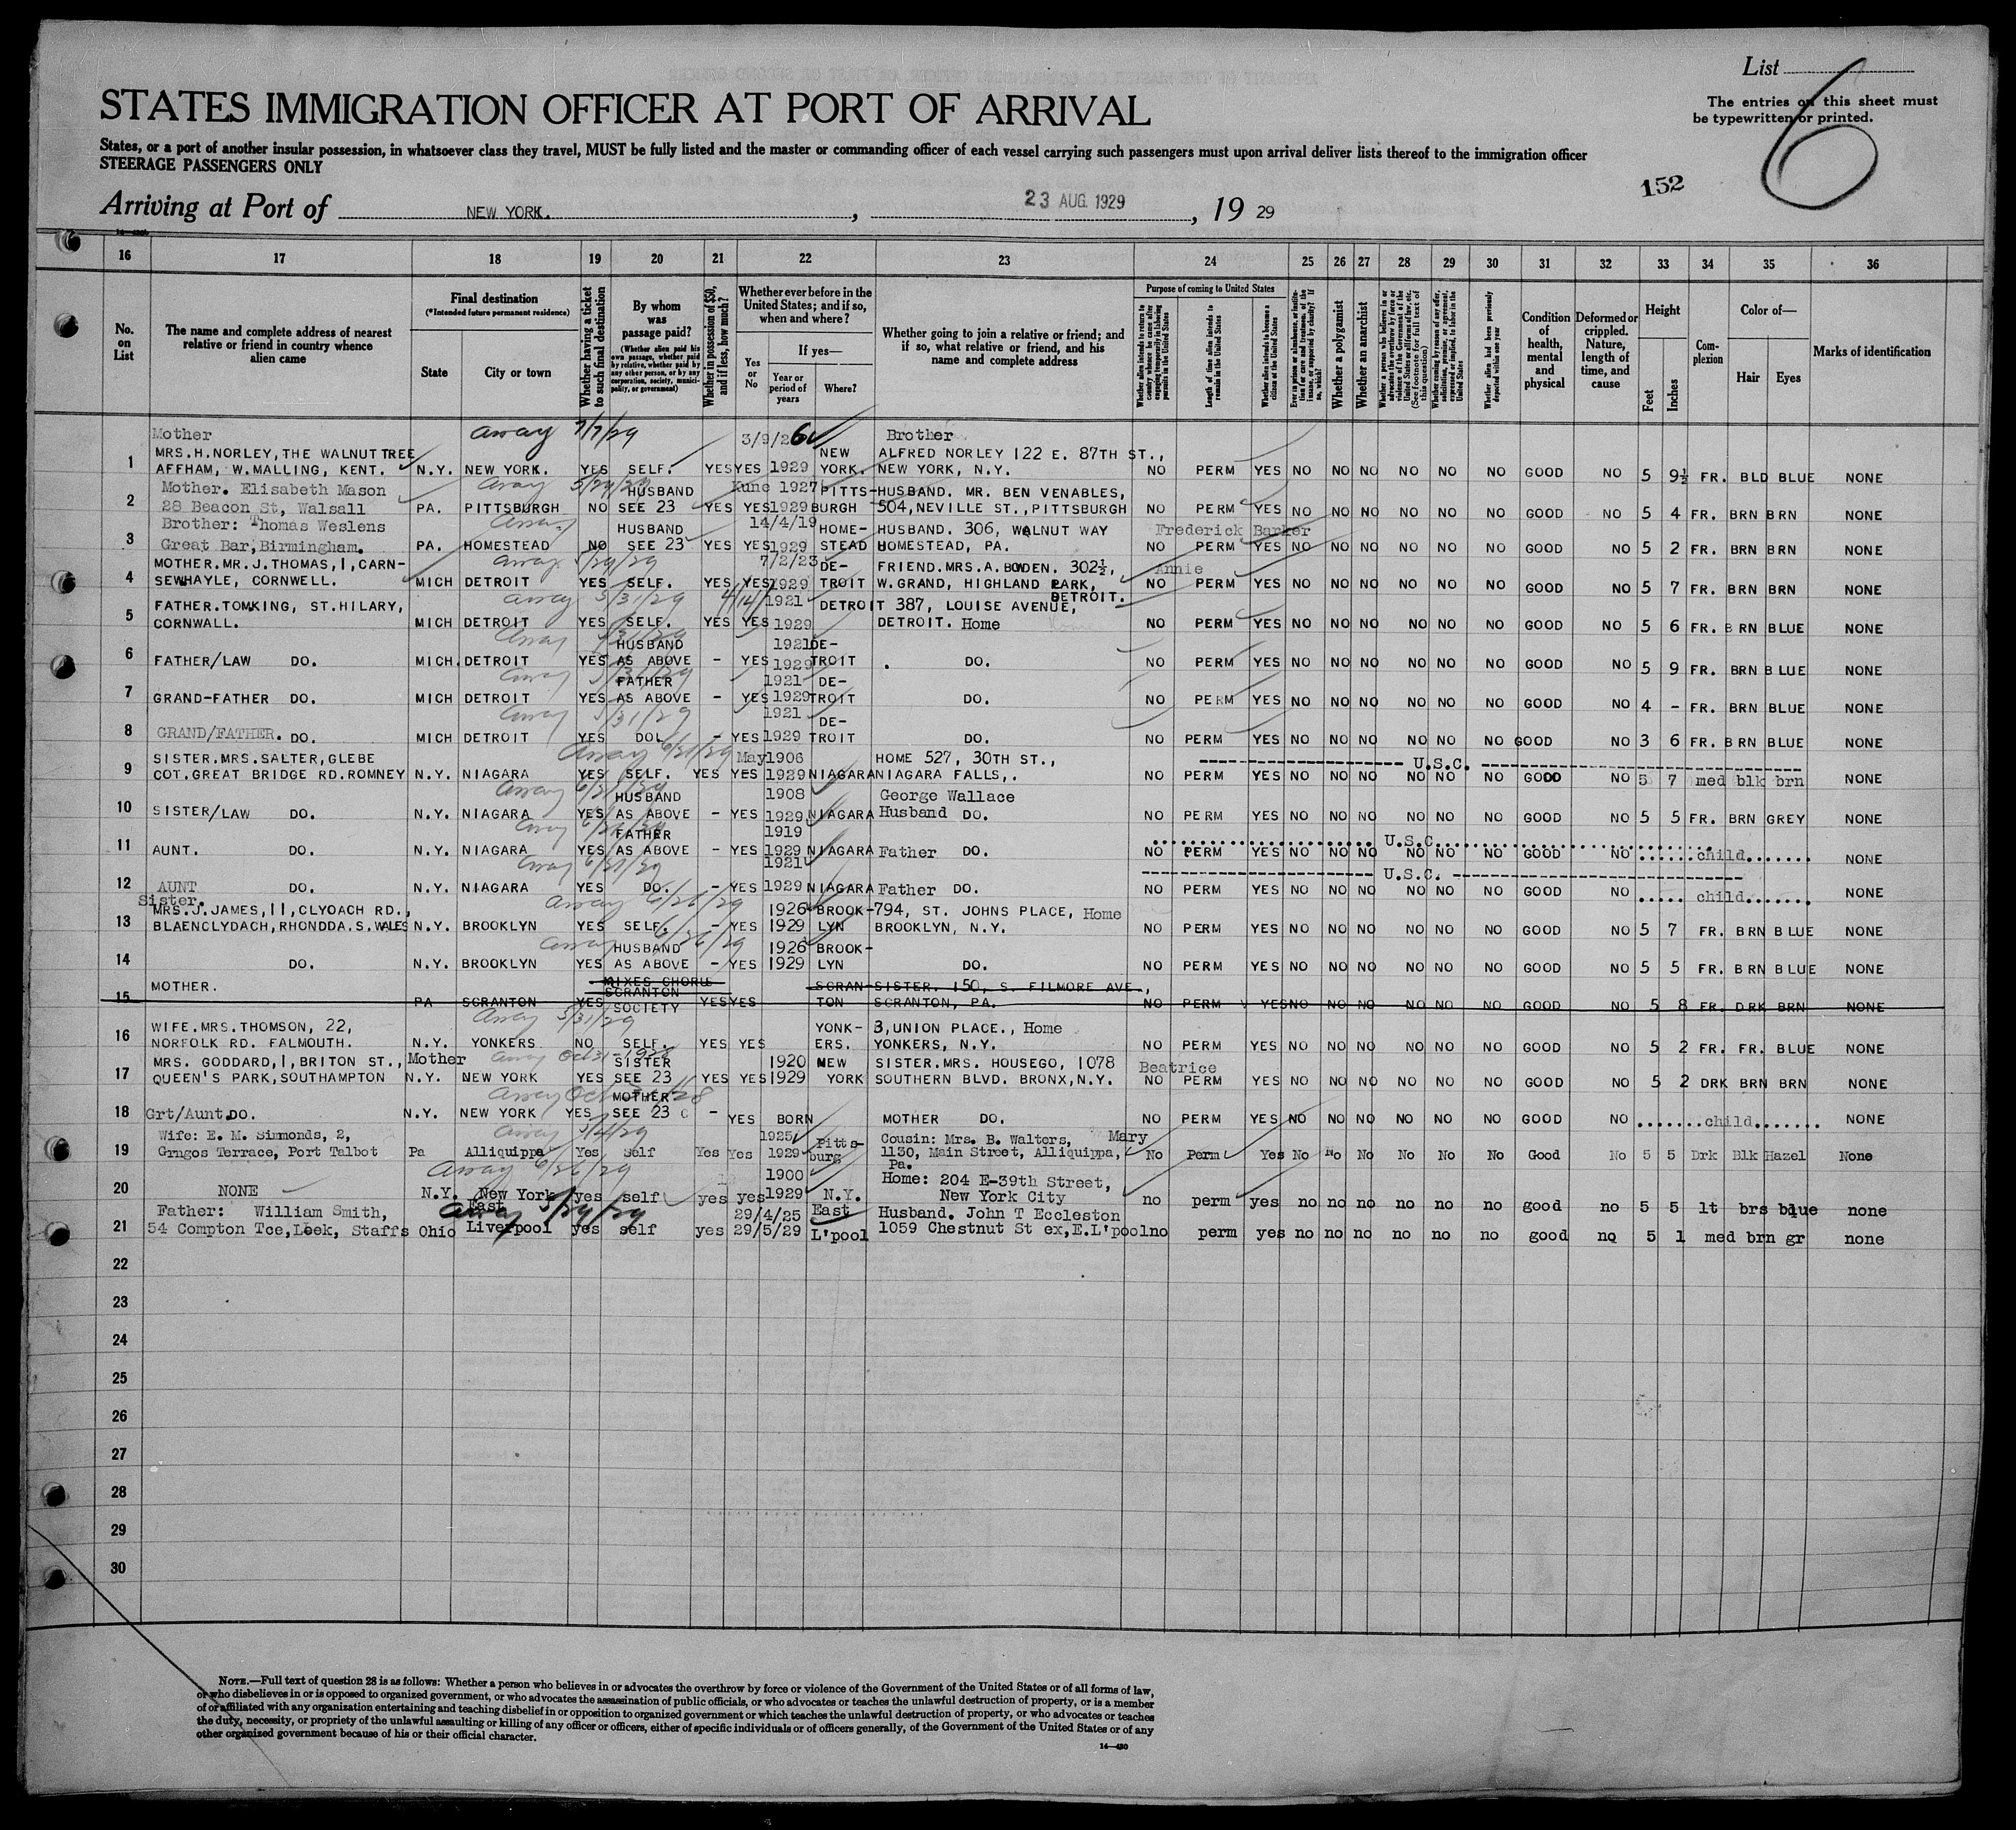 List 6
STATES IMMIGRATION OFFICER AT PORT OF ARRIVAL
The entries on this sheet must
be typewritten or printed.
States, or a port of another insular possession, in whatsoever class they travel, MUST be fully listed and the master or commanding officer of each vessel carrying such passengers must upon arrival deliver lists thereof to the immigration officer
STEERAGE PASSENGERS ONLY
152
Arriving at Port of NEW YORK. , 23 AUG. 1929 , 19 29
16 17 18 19 20 21 22 23 24 25 26 27 28 29 30 31 32 33 34 35 36
No. on List
The name and complete address of nearest relative or friend in country whence alien came
Final destination
(*Intended future permanent residence)
State
City or town
Whether having a ticket to such final destination
By whom was passage paid?
(Whether alien paid his own passage, whether paid by relative, whether paid by any other person, or by any corporation, society, municipality, or government)
Whether in possession of $50, and if less, how much?
Whether ever before in the United States; and if so, when and where?
Yes or No
If yes—
Year or period of years
Where?
Whether going to join a relative or friend; and if so, what relative or friend, and his name and complete address
Purpose of coming to United States
Whether alien intends to return to country whence he came after engaging temporarily in laboring pursuits in the United States
Length of time alien intends to remain in the United States
Whether alien intends to become a citizen of the United States
Ever in prison or almshouse, or institution for care and treatment of the insane, or supported by charity? If so, which?
Whether a polygamist
Whether an anarchist
Whether a person who believes in or advocates the overthrow by force or violence of the Government of the United States or all forms of law, etc. (See footnote for full text of this question)
Whether coming by reason of any offer, solicitation, promise, or agreement, expressed or implied, to labor in the United States
Whether alien had been previously deported within one year
Condition of health, mental and physical
Deformed or crippled. Nature, length of time, and cause
Height
Feet
Inches
Complexion
Color of—
Hair
Eyes
Marks of identification
Mother away 7/7/29 3/9/26 Brother
1 MRS.H.NORLEY, THE WALNUT TREE NEW ALFRED NORLEY 122 E. 87TH ST.,
AFFHAM, W.MALLING, KENT. N.Y. NEW YORK. YES SELF. YES YES 1929 YORK. NEW YORK, N.Y. NO PERM YES NO NO NO NO NO NO GOOD NO 5 9½ FR. BLD BLUE NONE
2 Mother. Elisabeth Mason away 5/29/29 HUSBAND 1927 PITTS- HUSBAND. MR. BEN VENABLES,
28 Beacon St, Walsall PA. PITTSBURGH NO SEE 23 YES YES 1929 BURGH 504, NEVILLE ST., PITTSBURGH NO PERM YES NO NO NO NO NO NO GOOD NO 5 4 FR. BRN BRN NONE
3 Brother: Thomas Weslens away HUSBAND 14/4/19 HOME- HUSBAND. 306, WALNUT WAY Frederick Barker
Great Bar, Birmingham. PA. HOMESTEAD NO SEE 23 YES YES 1929 STEAD HOMESTEAD, PA. NO PERM YES NO NO NO NO NO NO GOOD NO 5 2 FR. BRN BRN NONE
4 MOTHER.MR.J.THOMAS, 1, CARN- away 5/29/29 7/2/23 DE- FRIEND.MRS.A.BOWDEN. 302½, Annie
SEWHAYLE, CORNWELL. MICH DETROIT YES SELF. YES YES 1929 TROIT W.GRAND, HIGHLAND PARK, DETROIT. NO PERM YES NO NO NO NO NO NO GOOD NO 5 7 FR. BRN BRN NONE
5 FATHER.TOMKING, ST.HILARY, away 5/31/29 4/14/1921 DETROIT 387, LOUISE AVENUE,
CORNWALL. MICH DETROIT YES SELF. YES YES 1929 DETROIT. Home NO PERM YES NO NO NO NO NO NO GOOD NO 5 6 FR. BRN BLUE NONE
away 5/31/29 HUSBAND 1921 DE-
6 FATHER/LAW DO. MICH. DETROIT YES AS ABOVE - YES 1929 TROIT DO. NO PERM YES NO NO NO NO NO NO GOOD NO 5 9 FR. BRN BLUE NONE
away 5/31/29 FATHER 1921 DE-
7 GRAND-FATHER DO. MICH DETROIT YES AS ABOVE - YES 1929 TROIT DO. NO PERM YES NO NO NO NO NO NO GOOD NO 4 - FR. BRN BLUE NONE
away 5/31/29 1921 DE-
8 GRAND/FATHER. DO. MICH DETROIT YES DO. - YES 1929 TROIT DO. NO PERM YES NO NO NO NO NO NO GOOD NO 3 6 FR. BRN BLUE NONE
9 SISTER.MRS.SALTER, GLEBE away 6/21/29 May 1906 HOME 527, 30TH ST., U.S.C.
COT.GREAT BRIDGE RD.ROMNEY N.Y. NIAGARA YES SELF. YES YES 1929 NIAGARA NIAGARA FALLS,. NO PERM YES NO NO NO NO NO NO GOOD NO 5 7 med blk brn NONE
away HUSBAND 1908 George Wallace
10 SISTER/LAW DO. N.Y. NIAGARA YES AS ABOVE - YES 1929 NIAGARA Husband DO. NO PERM YES NO NO NO NO NO NO GOOD NO 5 5 FR. BRN GREY NONE
away FATHER 1919 U.S.C.
11 AUNT. DO. N.Y. NIAGARA YES AS ABOVE - YES 1929 NIAGARA Father DO. NO PERM YES NO NO NO NO NO NO GOOD NO child NONE
away 6/21/29 1921 U.S.C.
12 AUNT DO. N.Y. NIAGARA YES DO. - YES 1929 NIAGARA Father DO. NO PERM YES NO NO NO NO NO NO GOOD NO child NONE
Sister.
13 MRS.J.JAMES, 11, CLYOACH RD., away 6/26/29 1926 BROOK- 794, ST. JOHNS PLACE, Home
BLAENCLYDACH, RHONDDA.S.WALES N.Y. BROOKLYN YES SELF. - YES 1929 LYN BROOKLYN, N.Y. NO PERM YES NO NO NO NO NO NO GOOD NO 5 7 FR. BRN BLUE NONE
away 6/26/29 HUSBAND 1926 BROOK-
14 DO. N.Y. BROOKLYN YES AS ABOVE - YES 1929 LYN DO. NO PERM YES NO NO NO NO NO NO GOOD NO 5 5 FR. BRN BLUE NONE
MOTHER. MIXES CHORUS SCRANTON SCRAN- SISTER. 150, S. FILMORE AVE.,
15 PA SCRANTON YES SOCIETY YES YES TON SCRANTON, PA. NO PERM YES NO NO NO NO NO NO GOOD NO 5 8 FR. DRK BRN NONE
16 WIFE.MRS.THOMSON, 22, away 5/31/29 YONK- 3, UNION PLACE., Home
NORFOLK RD. FALMOUTH. N.Y. YONKERS NO SELF. YES YES ERS. YONKERS, N.Y. NO PERM YES NO NO NO NO NO NO GOOD NO 5 2 FR. FR. BLUE NONE
17 MRS. GODDARD, 1, BRITON ST., Mother away Oct 31-1928 SISTER 1920 NEW SISTER.MRS. HOUSEGO, 1078 Beatrice
QUEEN'S PARK, SOUTHAMPTON N.Y. NEW YORK YES SEE 23 YES YES 1929 YORK SOUTHERN BLVD. BRONX, N.Y. NO PERM YES NO NO NO NO NO NO GOOD NO 5 2 DRK BRN BRN NONE
away Oct MOTHER
18 Grt/Aunt. DO. N.Y. NEW YORK YES SEE 23 - YES BORN MOTHER DO. NO PERM YES NO NO NO NO NO NO GOOD NO child NONE
19 Wife: E. M. Simmonds, 2, away 1925 Pitts- Cousin: Mrs. B. Walters, Mary
Grngos Terrace, Port Talbot Pa Alliquippa Yes Self Yes Yes 1929 burg 1130, Main Street, Alliquippa, Pa. No Perm Yes No No No No No No Good No 5 5 Drk Blk Hazel None
away 6/26/29 1900 Home: 204 E-39th Street,
20 NONE N.Y. New York yes self yes yes 1929 N.Y. New York City no perm yes no no no no no no good no 5 5 lt brs blue none
21 Father: William Smith, East away 5/29/29 29/4/25 East Husband. John T Eccleston
54 Compton Tce, Leek, Staffs Ohio Liverpool yes self yes 29/5/29 L'pool 1059 Chestnut St ex, E.L'pool no perm yes no no no no no no good no 5 1 med brn gr none
22
23
24
25
26
27
28
29
30
NOTE.—Full text of question 28 is as follows: Whether a person who believes in or advocates the overthrow by force or violence of the Government of the United States or of all forms of law,
or who disbelieves in or is opposed to organized government, or who advocates the assassination of public officials, or who advocates or teaches the unlawful destruction of property, or is a member
of or affiliated with any organization entertaining and teaching disbelief in or opposition to organized government or which teaches the unlawful destruction of property, or who advocates or teaches
the duty, necessity, or propriety of the unlawful assaulting or killing of any officer or officers, either of specific individuals or of officers generally, of the Government of the United States or of any
other organized government because of his or their official character.
14—430